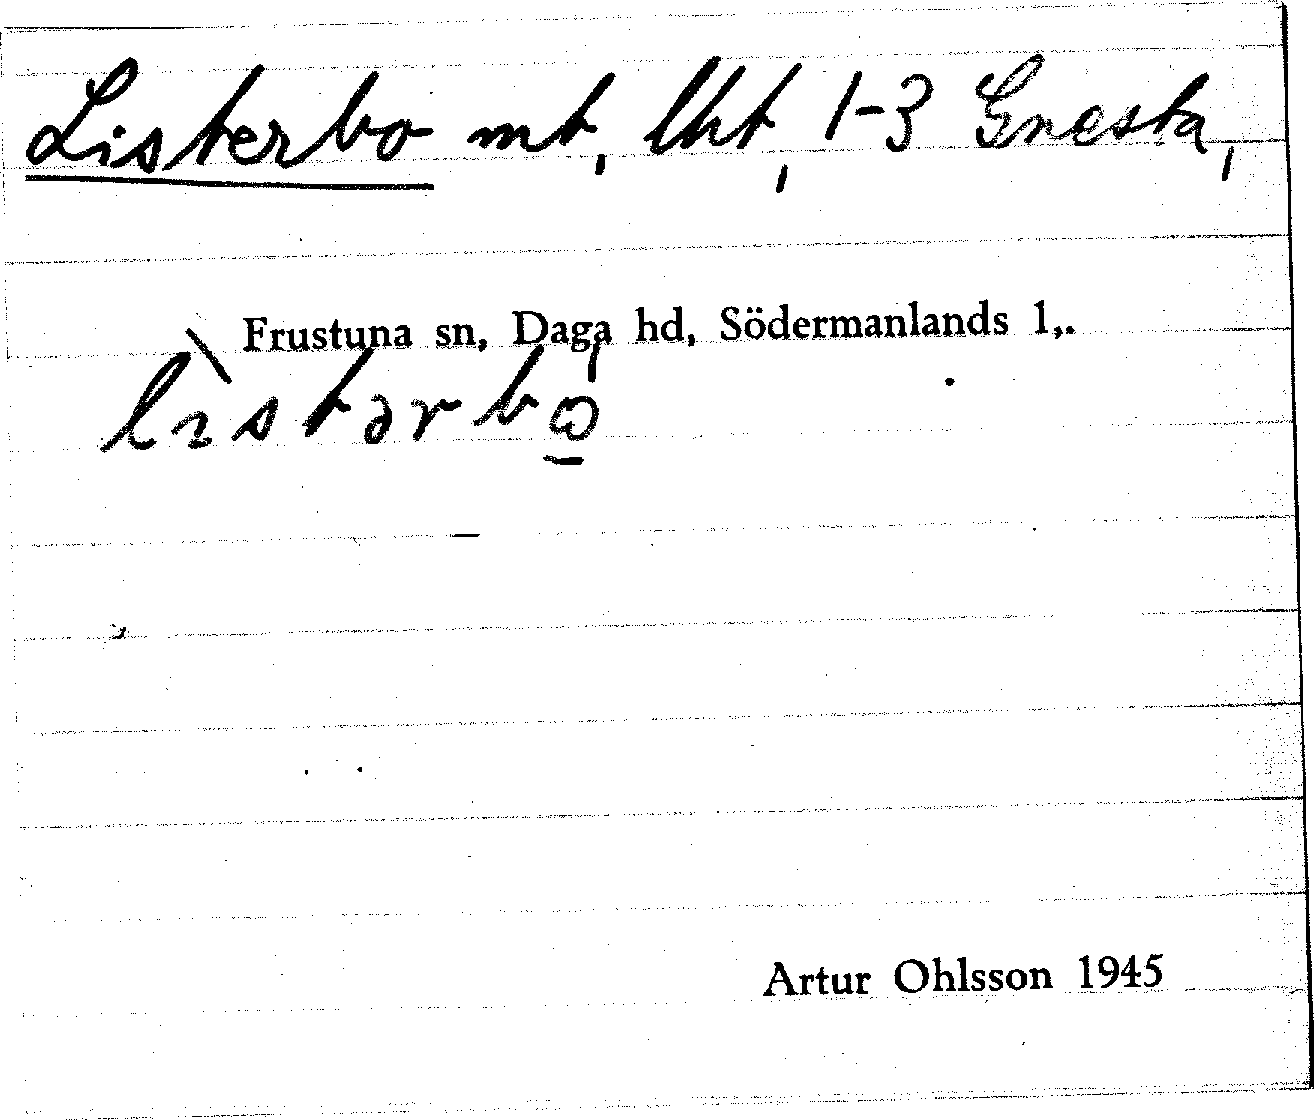 Listerbo mt, lht, 1-3 Gnesta,
Frustuna sn, Daga hd, Södermanlands l,.
lìstərbώ̱
Artur Ohlsson 1945